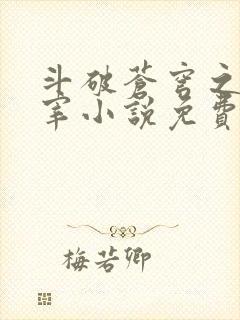 斗破苍穹之
宰小説免費
梅若卿